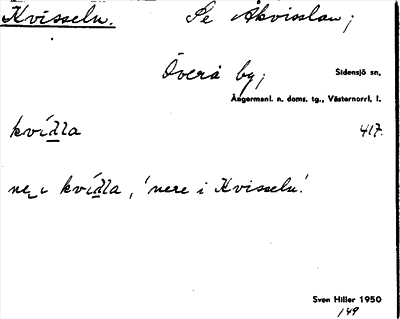 Kvisseln. Se Åkvisslan;
Överå by;
Sidensjö sn,
Ångermanl. n. doms. tg., Västernorrl. l.
kvíďla 417.
ne i kvíďla, 'nere i Kvisseln'.
Sven Hiller 1950
149